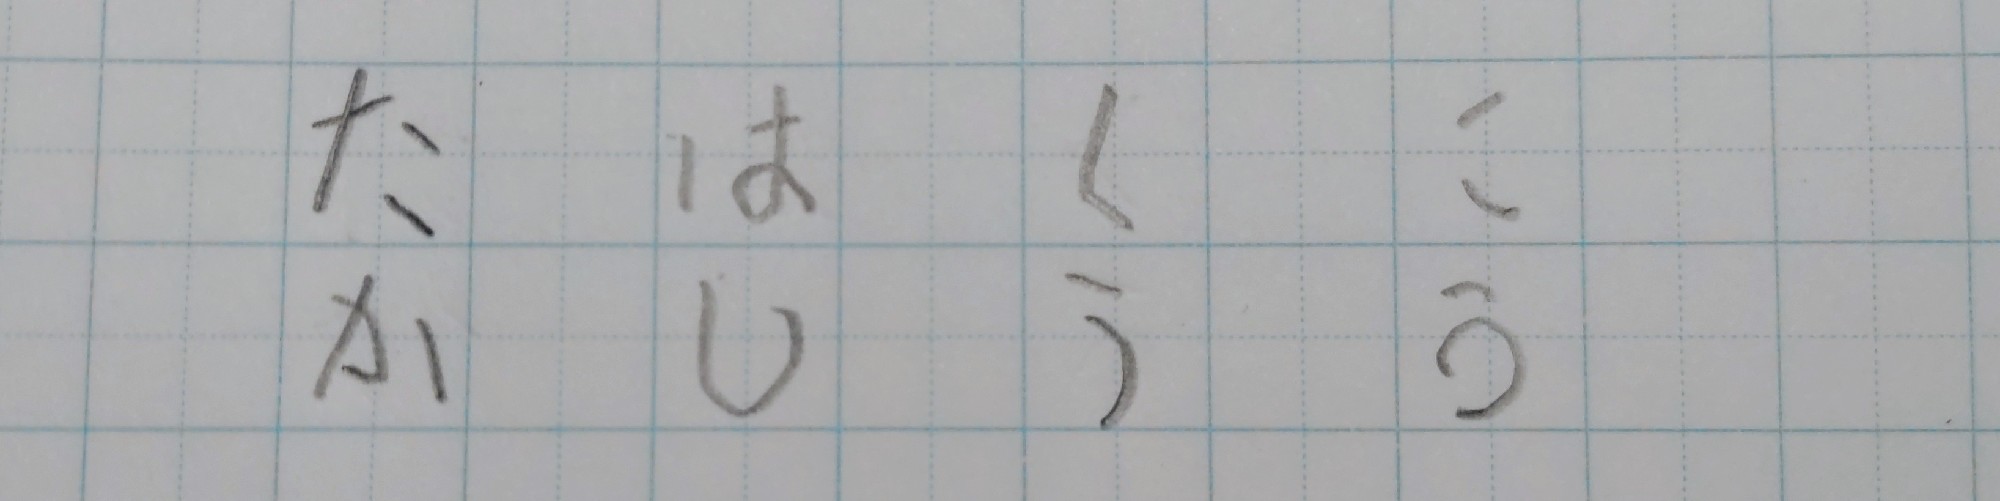 こう
くう
はし
たか